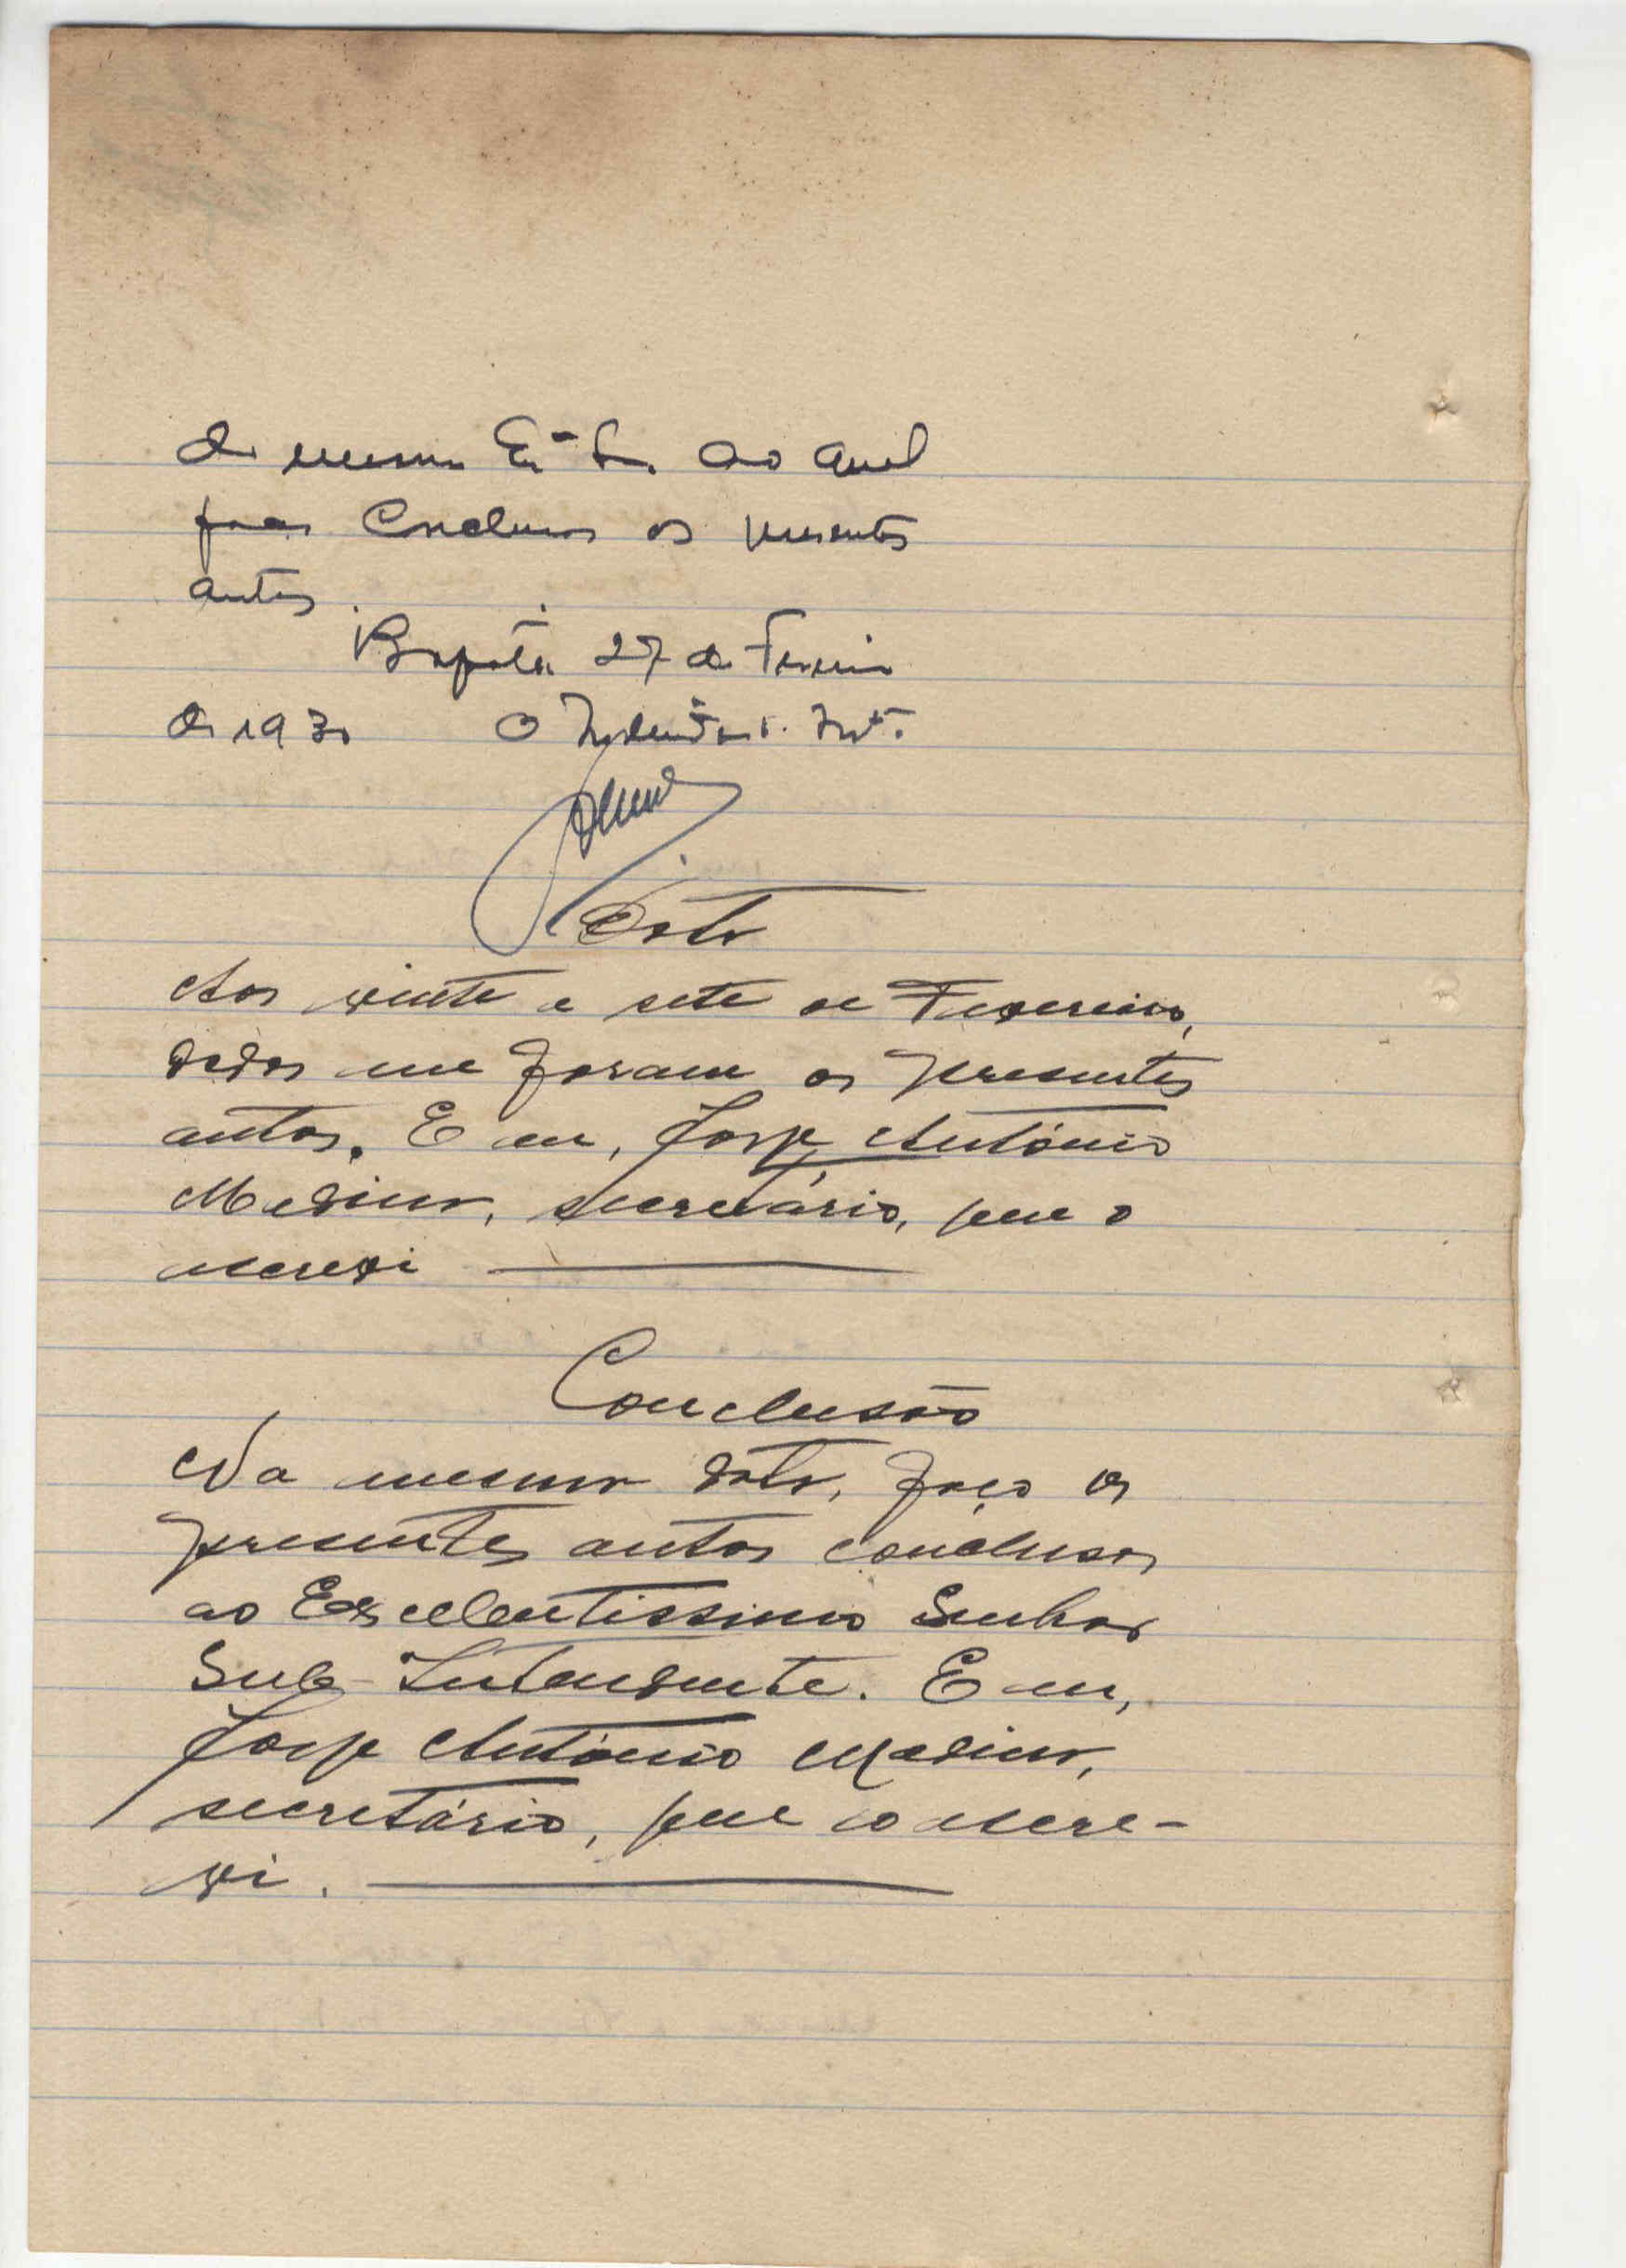 do mesmo Exº Sr. ao qual
faço conclusos os presentes
autos.
27 de Fevereiro
de 1930 O Int.º
Data
Aos vinte e sete de Fevereiro,
dados me foram os presentes
autos. E eu, Jorge António
Medina, secretário, que o
escrevi
Conclusão
Na mesma data, faço os
presentes autos conclusos
ao Excelentissimo Senhor
Sub-Intendente. E eu,
Jorge António Medina,
secretário, que o escre-
vi.